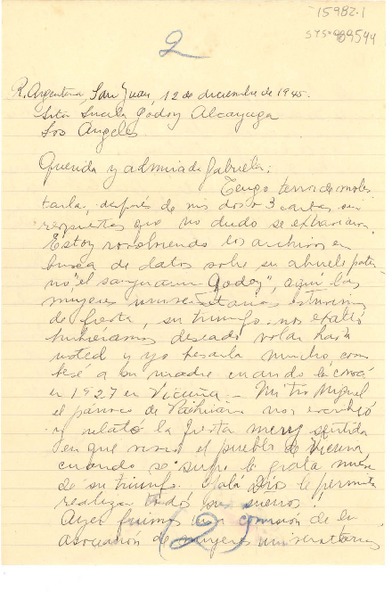 15982.1
2
R. Argentina, San Juan, 12 de diciembre de 1945.
Srta Lucila Godoy Alcayaga
Los Angeles
Querida y admirada Gabriela:
Tengo temor de moles
tarla, después de mis dos o 3 cartas sin
respuestas que no dudo se extraviaron
Estoy revolviendo los archivos en
busca de datos sobre su abuelo pater
no "el Godoy", aquí las
mujeres universitarias estuvimos
de fiesta, su triunfo nos exaltó
hubiéramos deseado volar hasta
usted y yo besarla mucho, como
besé a su madre cuando la conocí
en 1927 en Vicuña.- Mi tío Miguel
el párroco de nos escribió
y relató la fiesta muy sentida
en que vivió el pueblo de Vicuña
cuando se supo la grata nueva
de su triunfo. Ojalá Dios le permita
realizar todos sus sueños!
Ayer fuimos comisión de la
asociación de mujeres universitarias
(2)